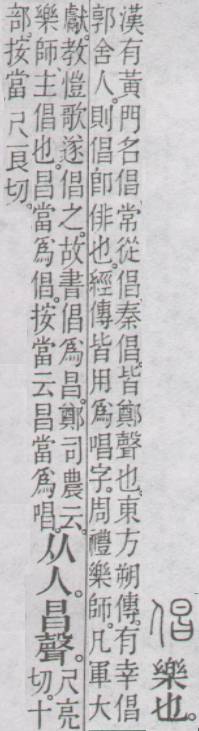 倡樂也。
漢有黃門名倡常從倡秦倡。皆鄭聲也。東方朔傳。有幸倡
郭舍人。則倡卽俳也。經傳皆用爲唱字。周禮樂師。凡軍大
獻。教愷歌。遂倡之。故書倡爲昌。鄭司農云。
樂師主倡也。昌當爲倡。按當云昌當爲唱。从人。昌聲。尺亮
切。十
部。按當尺良切。